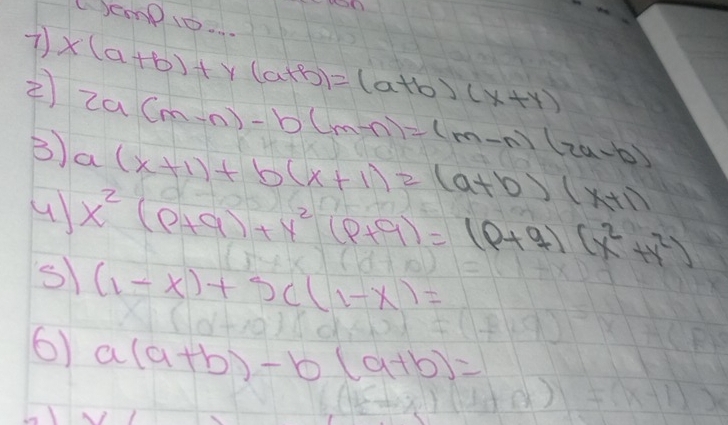 1) x(a+b)+y(a+b)=(a+b)(x+y)
2) 2a(m-n)-b(m-n)=(m-n)(2a-b)
3) a(x+1)+b(x+1)=(a+b)(x+1)
4) x²(p+q)+y²(p+q)=(p+q)(x²+y²)
5) (1-x)+5c(1-x)=
6) a(a+b)-b(a+b)=